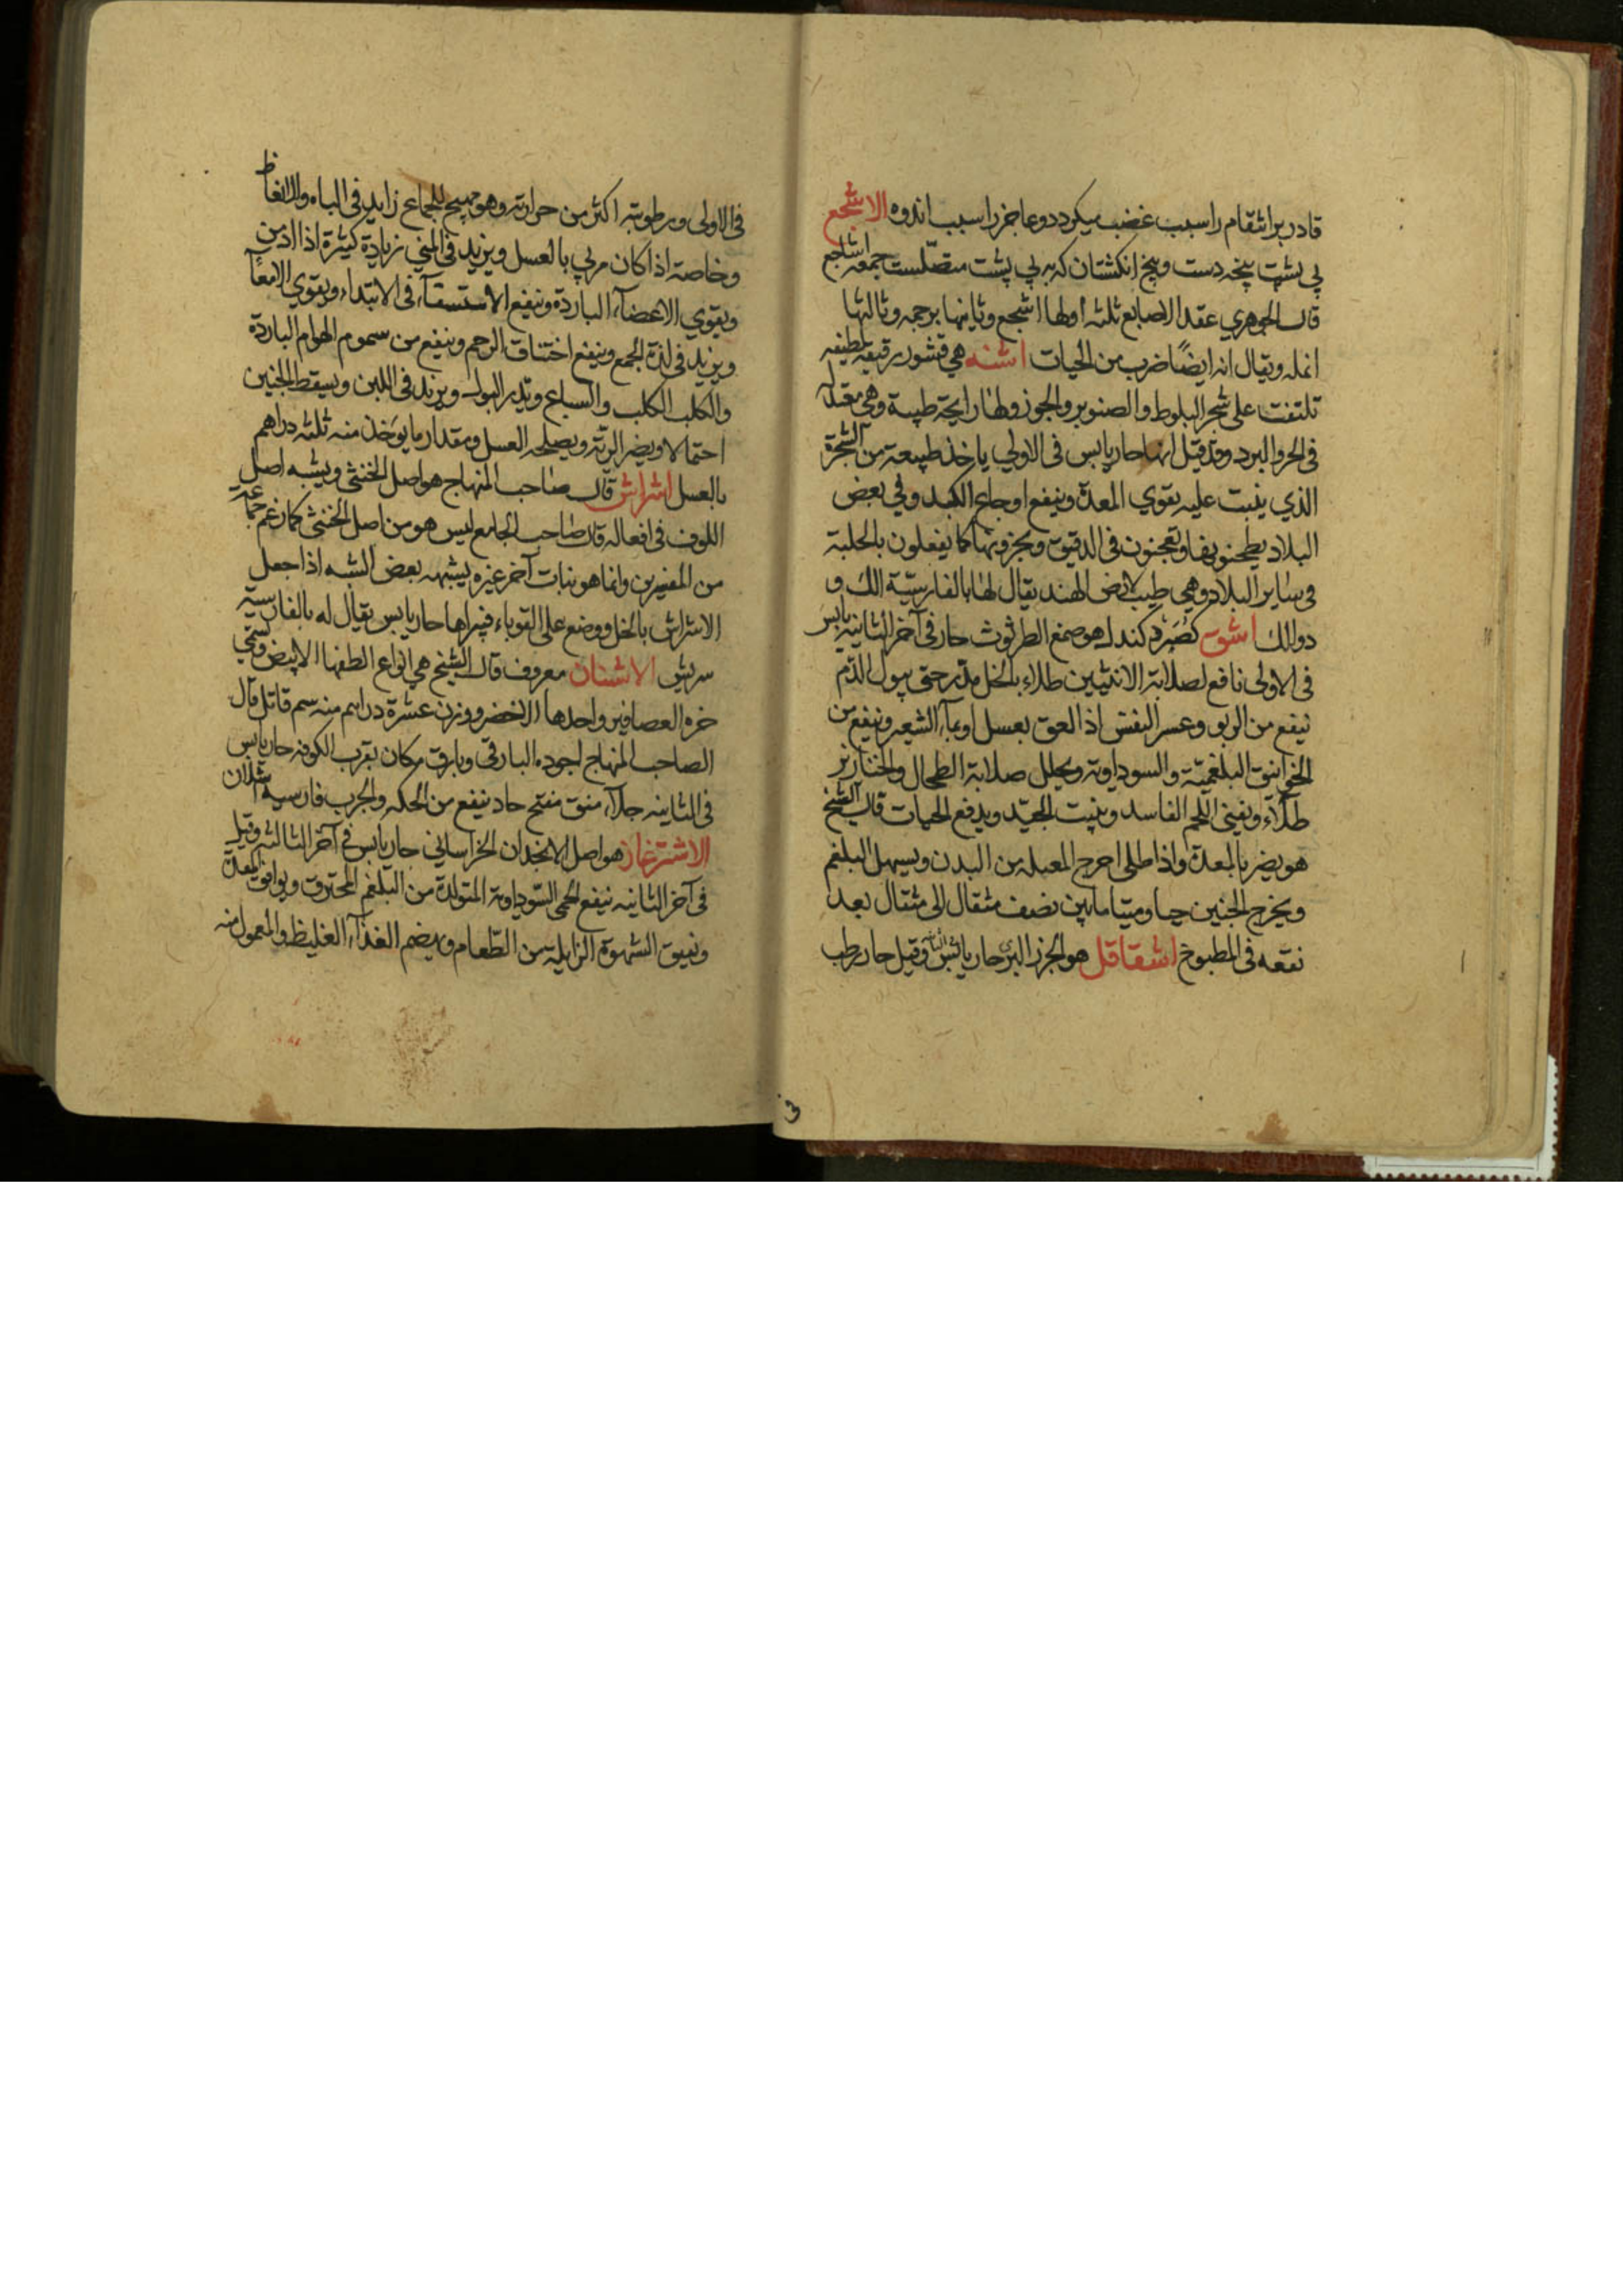 قادر بر انتقام را سبب غضب میکردد و عاجز را سبب اندوه الاشجع
پی پشت پنجه دست وبیخ انکشتان که به پی پشت متصلست جمعه اشاجع
قال الجوهري عقد الاصابع ثلثه اولها اشجع وثانیها برجمه وثالثها
انمله ویقال انه ایضًا ضرب من الحیات اشنه هي قشور رقیقه لطیفه
تلتفت علی شجر البلوط والصنوبر والجوز ولها رایحة طیبة وهي معتدله
في الحر والبرد وقد قیل انها حار یابس فی الاولي یاخذ طبیعته من الشجرة
الذي ینبت علیه یقوي المعدة وینفع اوجاع الکبد وفي بعض
البلاد یطحنونها ویعجنون فی الدقیق ویخبزونها کما یفعلون بالحلبة
فی سایر البلاد وهي طیب لارض الهند یقال لها بالفارسیّة الك و
دوالك اشق کصُرَّد کندا هو صمغ الطرثوث حار فی آخر الثانیه یابس
فی الاولی نافع لصلابة الانثیین طلاء بالخل مدّر حتی یبول الدّم
ینفع من الربو وعسر النفس اذا لعق بعسل او بمآء الشعیر وینفع من
الخوانیق البلغمیّة والسوداویة ویحلل صلابة الطحال والخنازیر
طلآء ویفنی اللحم الفاسد وینبت الجیّد ویدفع الحمیات قال الشیخ
هو یضر بالمعدة واذا طلی اخرج من البدن ویسهل البلغم
ویخرج الجنین حیا ومیتا مابین نصف مثقال الی مثقال بعد
نقعه فی المطبوخ اشقاقل هو الجزر البری حار یابس فی الثانیه وقیل حار رطب
فی الاولی ورطوبته اکثر من حرارته وهو مهیج للجماع زاید فی الباه والانعاظ
وخاصة اذا کان مربي بالعسل ویزید فی المني زیادة کثیرة اذا ادمن
ویقوي الاعضآء الباردة وینفع الاستسقآء فی الابتداء ویقوي الامعآ
ویزید فی لذة الجمع وینفع اختناق الرحم وینفع من سموم الهوام الباردة
والکلب الکلب والسباع ویدر البول ویزید فی اللبن ویسقط الجنین
احتمالا ویضر الریّة ویصلحه العسل ومقدار ما یوخذ منه ثلثه دراهم
بالعسل اشراش قال صاحب المنهاج هو اصل الخنثی ویشبه اصل
اللوف فی افعاله قال صاحب الجامع لیس هو من اصل الخنثی کما زعم جماعه
من المفسرین وانما هو نبات آخر غیره یشبهه بعض الشبه اذا جعل
الاشراش بالخل ووضع علی القوباء فیبراها حار یابس یقال له بالفارسیة
سریش الاشنان معروف قال الشیخ هي انواع الطفها الابیض ویسمّی
خره العصافیر واحدها الاخضر ووزن عشرة دراهم منه سم قاتل قال
الصاحب المنهاج اجوده البارقی وبارق مکان بقرب الکوفه حار یابس
فی الثانیه جلآء منق مفتح حاد ینفع من الحکه والجرب فارسیه
الاشترغاز هو اصل الانجدان الخراسانی حار یابس فی آخر الثالثه وقیل
فی آخر الثانیه ینفع لحمی السّوداویة المتولدة من البلغم المحترق ویوافق المعدة
الشهوة الزایلة من الطّعام ویهضم الغذآء الغلیظ والمعمول منه